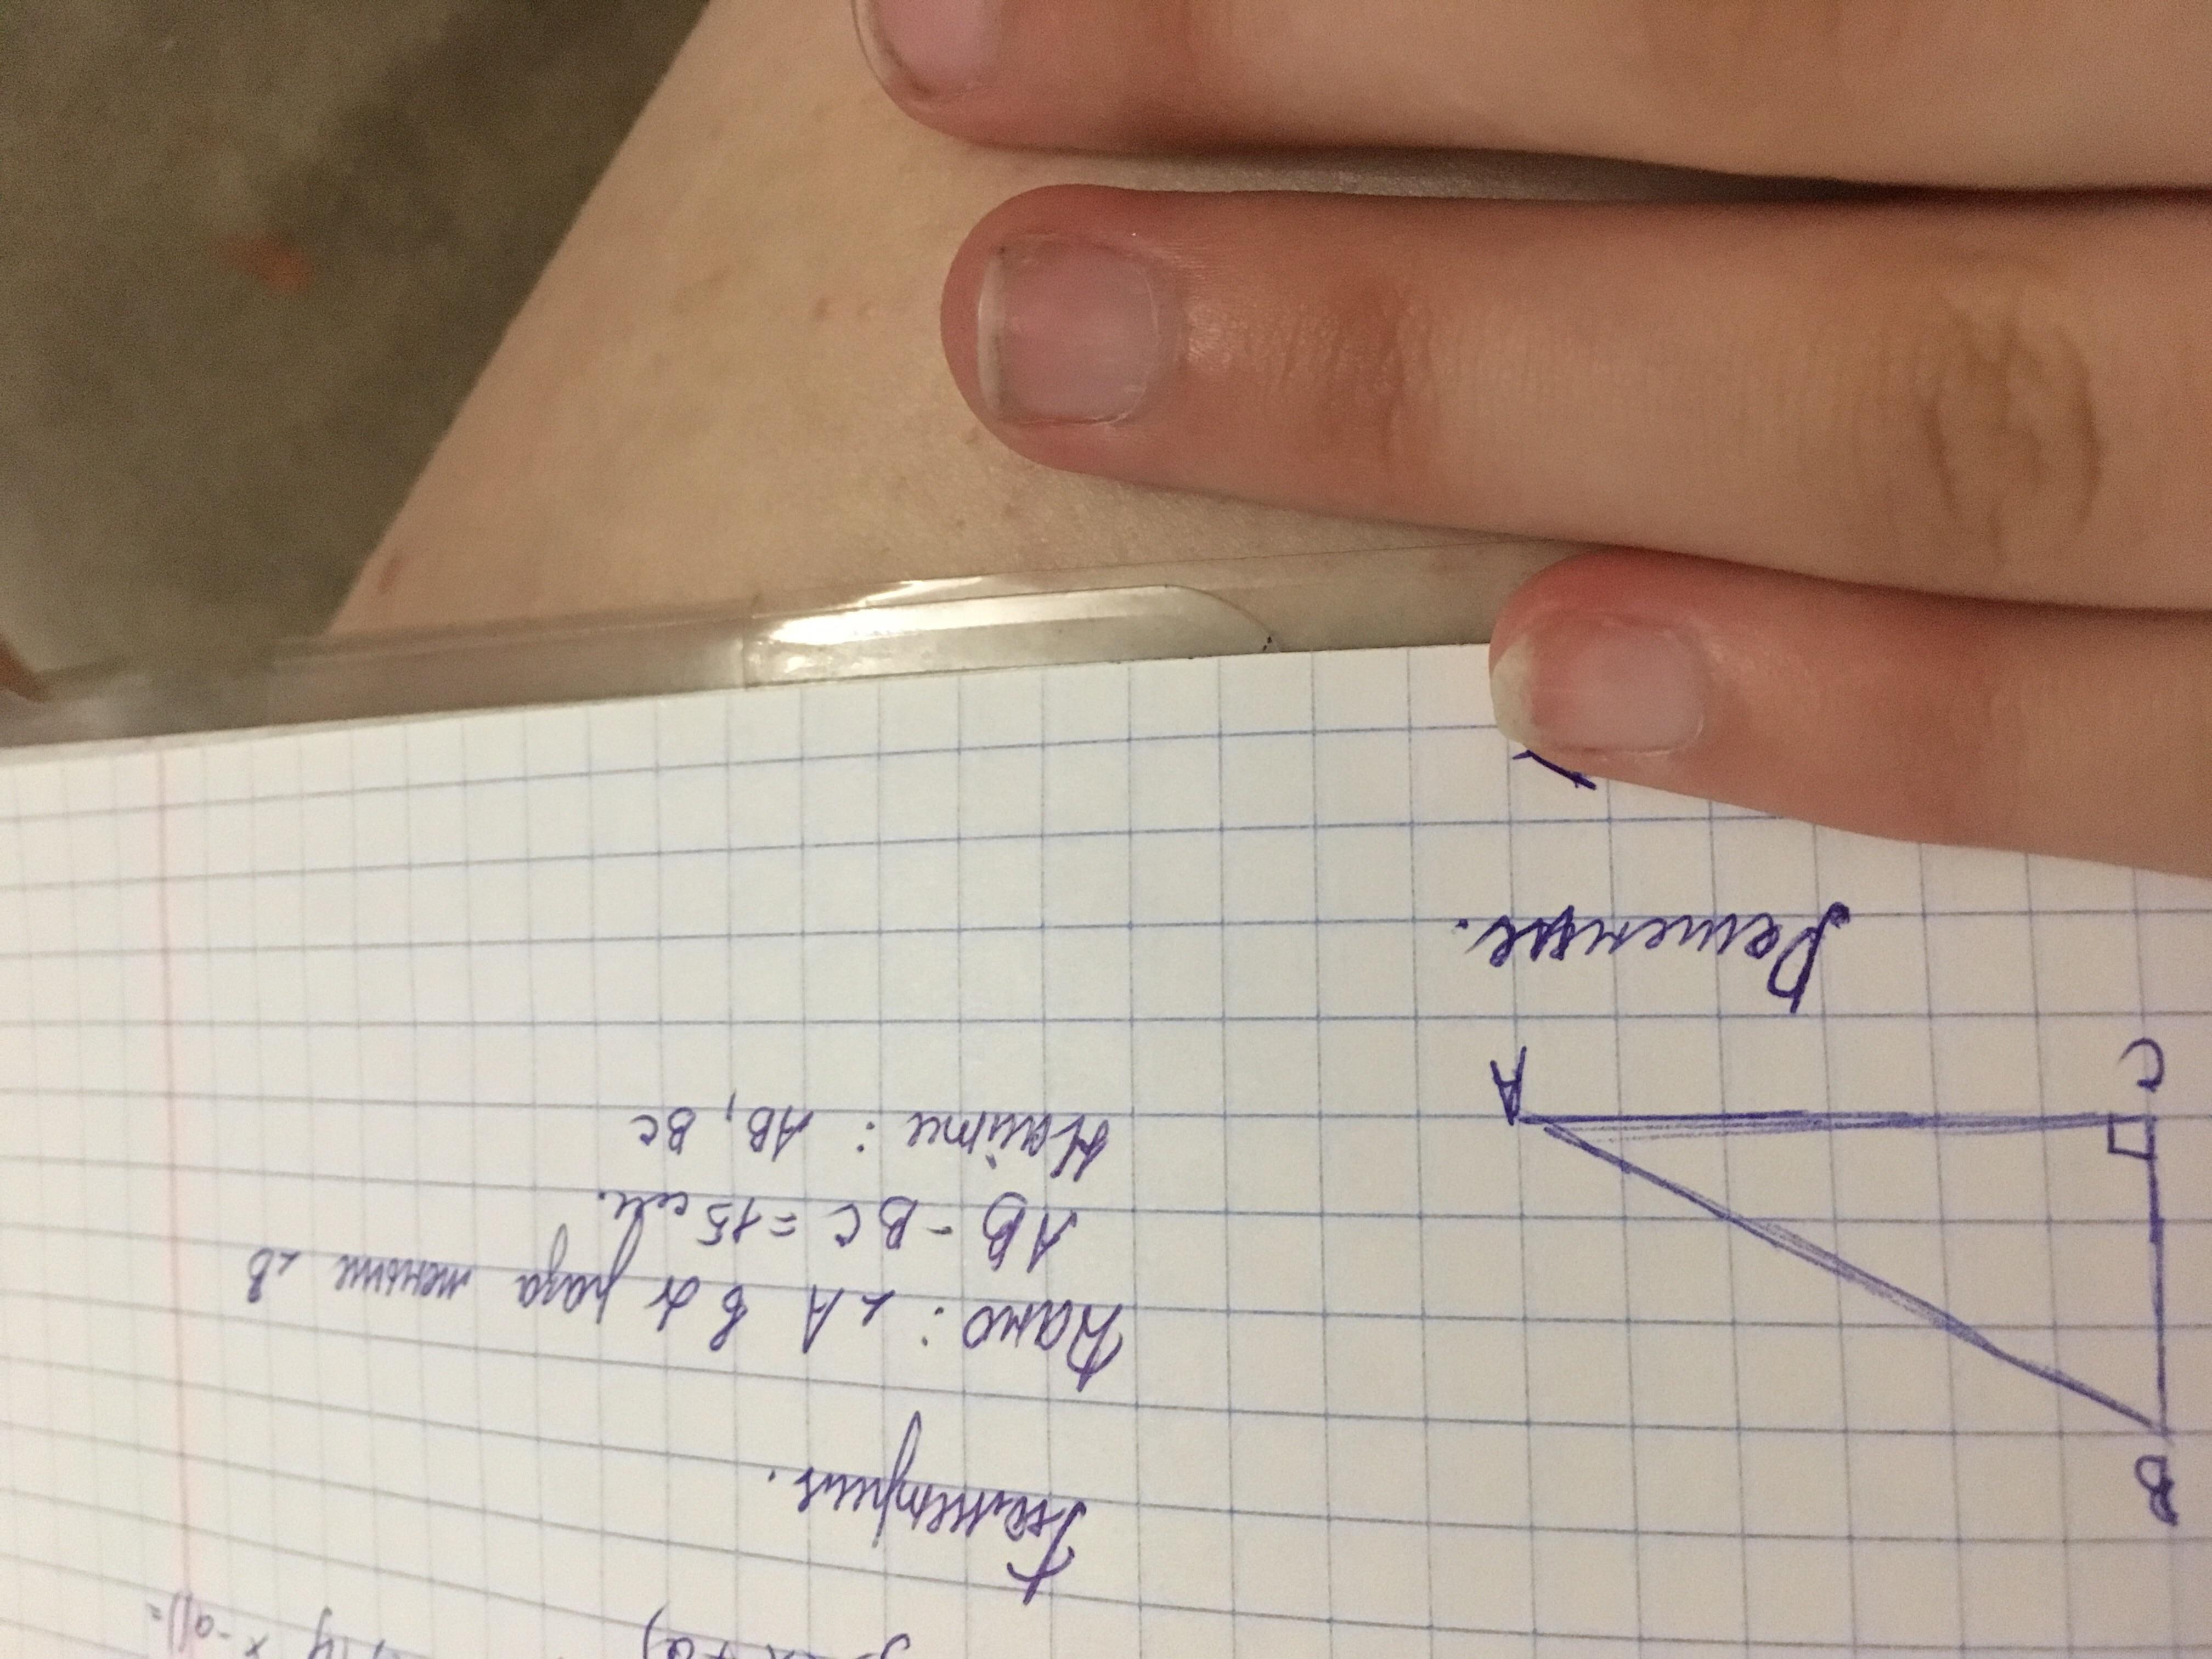 Геометрия.
Дано: ∠A в 2 раза меньше ∠B
AB - BC = 15 см.
Найти: AB, BC
B
A
C
Решение.